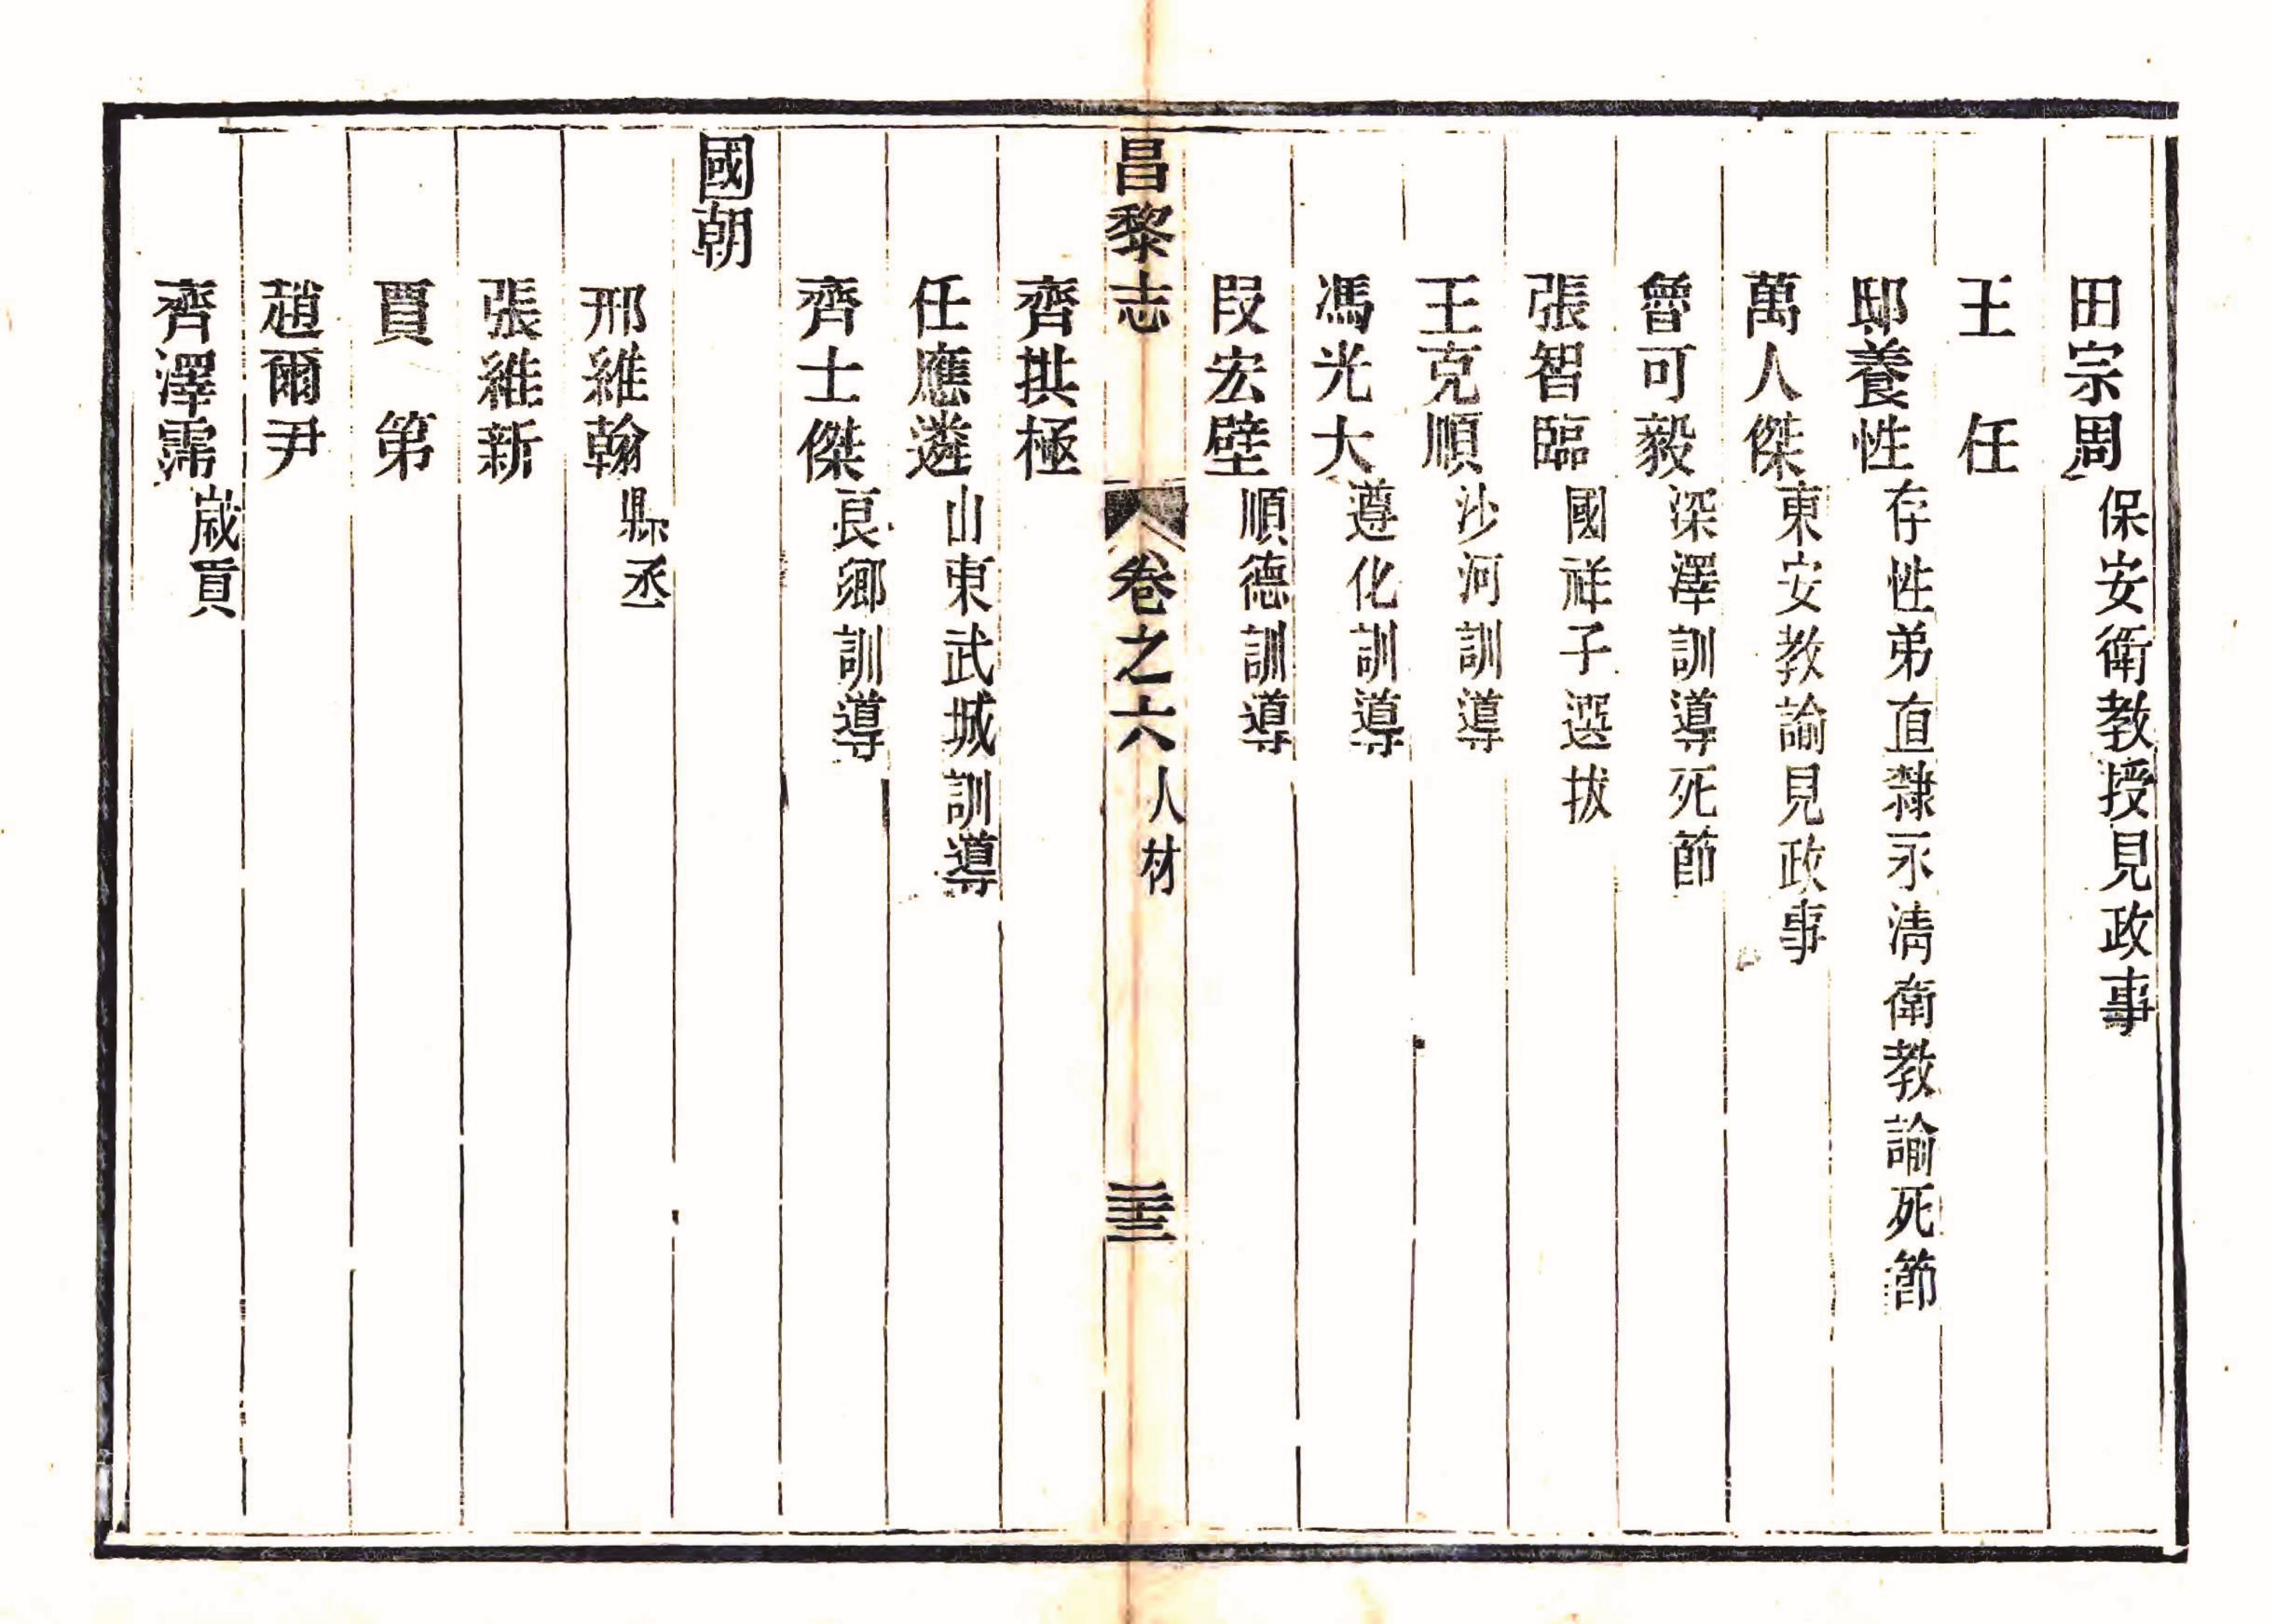 田宗周保安衛教授見政事
王任
邸養性存性弟直隸永清衛教諭死節
萬人傑東安教諭見政事
曾可毅深澤訓導死節
張智臨國祥子選拔
王克順沙河訓導
馮光大遵化訓導
段宏壁順德訓導
昌黎志 卷之六 人材 三十三
齊拱極
任應遴山東武城訓導
齊士傑良鄉訓導
國朝
邢維翰縣丞
張維新
賈第
趙爾尹
齊澤霈歲貢